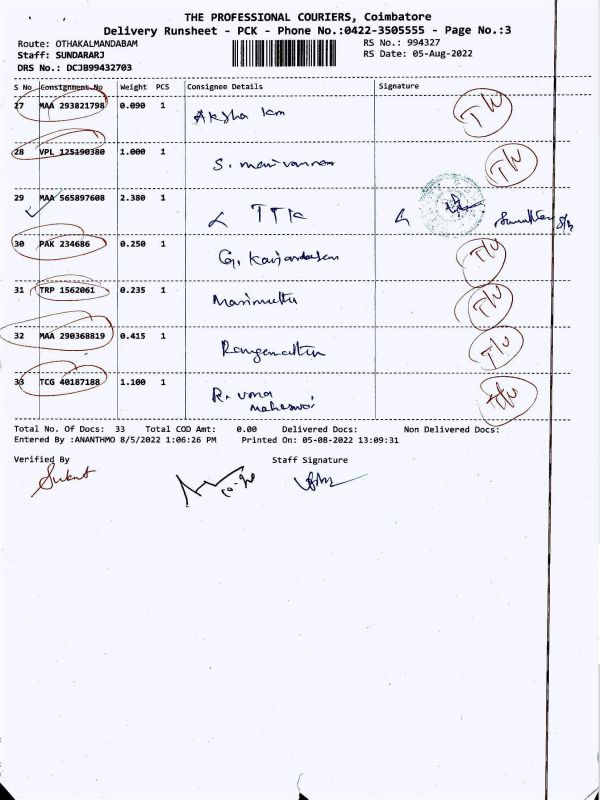 THE PROFESSIONAL COURIERS, Coimbatore
Delivery Runsheet - PCK - Phone No.:0422-3505555 - Page No.:3
Route: OTHAKALMANDABAM RS No.: 994327
Staff: SUNDARARJ RS Date: 05-Aug-2022
DRS No.: DCJB99432703
S No Consignment No Weight PCS Consignee Details Signature
27 MAA 293821798 0.090 1 Aksha T/W
28 VPL 125190380 1.000 1 S. manivannan T/W
29 MAA 565897608 2.380 1 TTK
30 PAK 234686 0.250 1 G. T/W
31 TRP 1562061 0.235 1 Marimuttu T/W
32 MAA 290368819 0.415 1 T/W
33 TCG 40187188 1.100 1 R. uma T/W
maheswari
Total No. Of Docs: 33 Total COD Amt: 0.00 Delivered Docs: Non Delivered Docs:
Entered By :ANANTHMO 8/5/2022 1:06:26 PM Printed On: 05-08-2022 13:09:31
Verified By Staff Signature